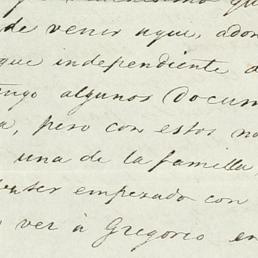 de venir aqui, ador
que independiente a
tengo algunos Docum
a, pero con estos no
una de la familla,
ser empezado con
ver à Gregorio en